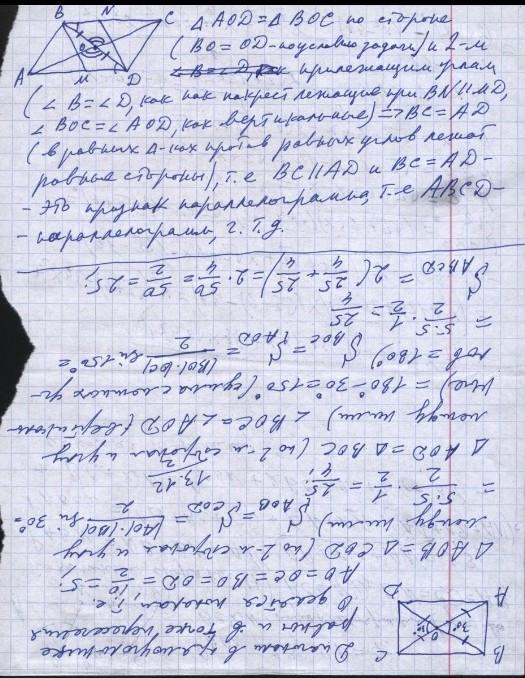 B N C
A M D
O
△ AOD = △ BOC по стороне
(BO = OD - по условию задачи) и 2-м
прилежащим углам
(∠B = ∠D, как накрест лежащие при BN || MD,
∠BOC = ∠AOD, как вертикальные) => BC = AD
(в равных △-ках против равных углов лежат
равные стороны), т.е. BC || AD и BC = AD -
- это признак параллелограмма, т.е. ABCD -
- параллелограмм, ч.т.д.
B C
A D
O
30°
Диагонали в прямоугольнике
равны и в точке пересечения
O делятся пополам, т.е.
AO = OC = BO = OD = 10/2 = 5;
△ AOB = △ COD (по 2-м сторонам и углу
между ними) S AOB = S COD = |AO|·|BO|/2 · sin 30° =
= 5·5/2 · 1/2 = 25/4;
13.12
△ AOD = △ BOC (по 2-м сторонам и углу
между ними) ∠BOC = ∠AOD (вертикаль-
ные) = 180° - 30° = 150° (сумма смежных уг-
лов = 180°) S BOC = S AOD = |BO|·|OC|/2 · sin 150° =
= 5·5/2 · 1/2 = 25/4
S ABCD = 2(25/4 + 25/4) = 2 · 50/4 = 50/2 = 25;